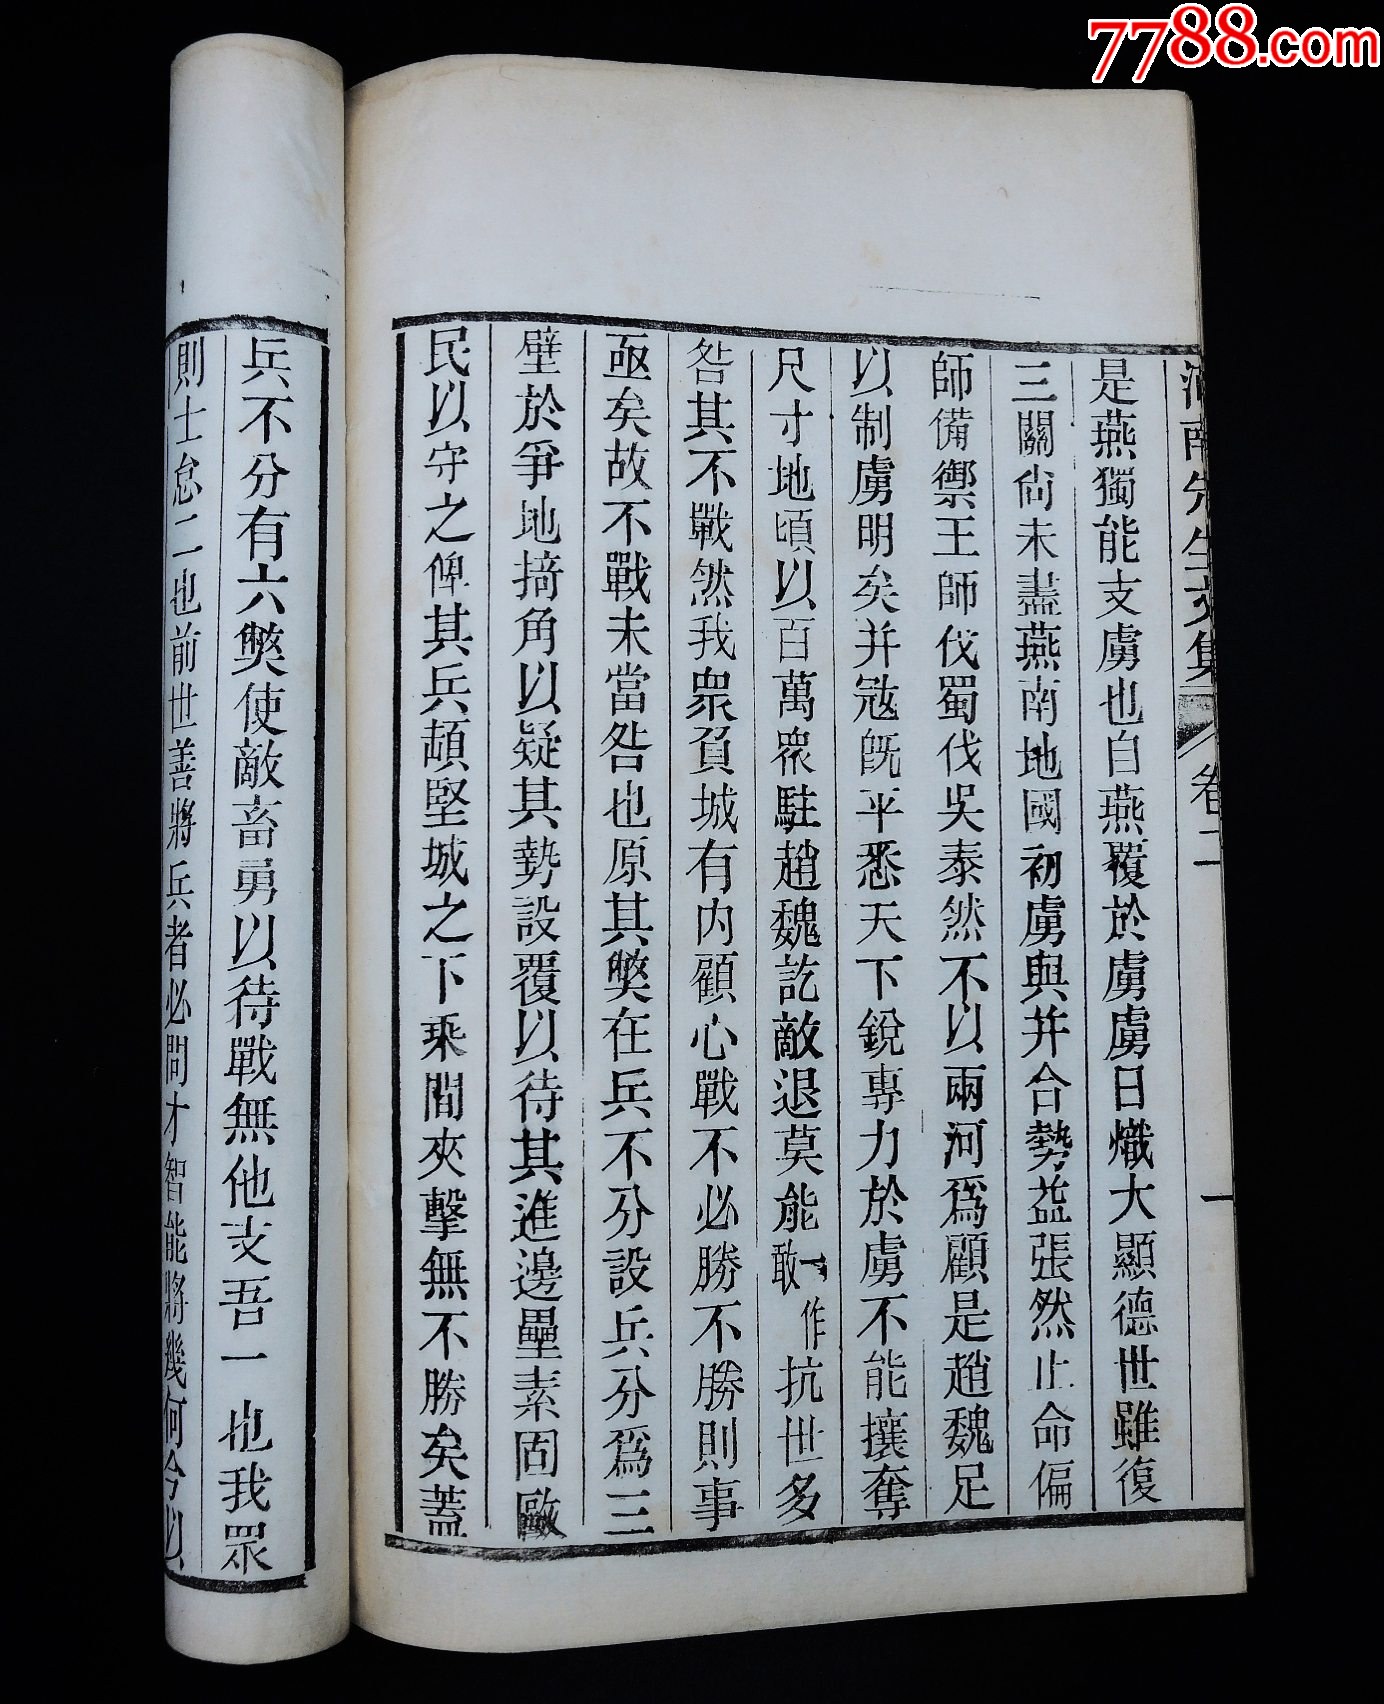 7788.com
河南先生文集 卷二 一
是燕獨能支虜也自燕覆於虜虜日熾大顯德世雖復
三關尙未盡燕南地國初虜與并合勢益張然止命偏
師備禦王師伐蜀伐吳泰然不以兩河爲顧是趙魏足
以制虜明矣并寇旣平悉天下銳專力於虜不能攘奪
尺寸地頃以百萬衆駐趙魏訖敵退莫能敢一作抗世多
咎其不戰然我衆負城有內顧心戰不必勝不勝則事
亟矣故不戰未當咎也原其獘在兵不分設兵分爲三
壁於爭地掎角以疑其勢設覆以待其進邊壘素固敺
民以守之俾其兵頓堅城之下乘間夾擊無不勝矣蓋
兵不分有六獘使敵畜勇以待戰無他支吾一也我眾
則士怠二也前世善將兵者必問才智能將幾何今以